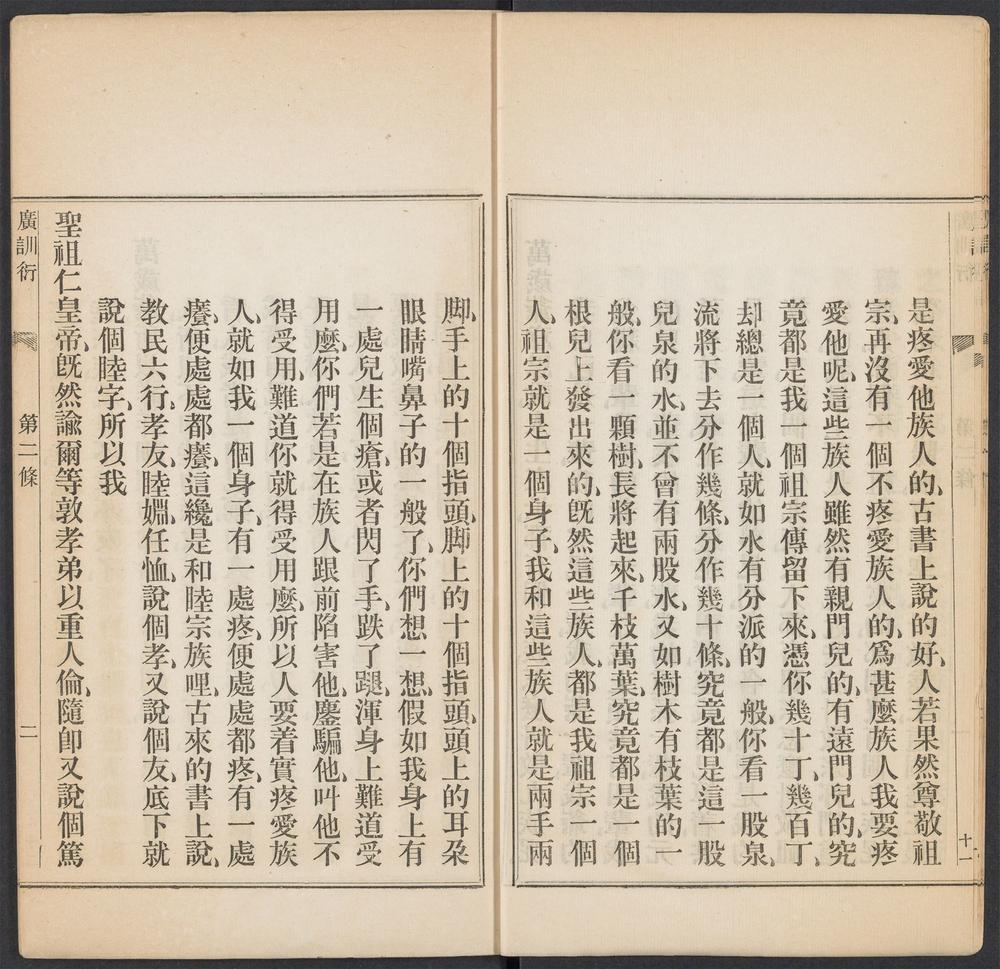 是疼愛他族人的、古書上說的好、人若果然尊敬祖
宗、再沒有一個不疼愛族人的、爲甚麼族人我要疼
愛他呢、這些族人雖然有親門兒的、有遠門兒的、究
竟都是我一個祖宗傳留下來、憑你幾十丁、幾百丁、
却總是一個人、就如水有分派的一般、你看一股泉、
流將下去分作幾條、分作幾十條、究竟都是這一股
兒泉的水、並不曾有兩股水、又如樹木有枝葉的一
般、你看一顆樹、長將起來、千枝萬葉、究竟都是一個
根兒上發出來的、旣然這些族人、都是我祖宗一個
人、祖宗就是一個身子、我和這些族人就是兩手兩
十一
脚、手上的十個指頭、脚上的十個指頭、頭上的耳朶
眼睛嘴鼻子的一般了、你們想一想、假如我身上有
一處兒生個瘡、或者閃了手、跌了腿、渾身上難道受
用麼、你們若是在族人跟前陷害他、鏖騙他、叫他不
得受用、難道你就得受用麼、所以人要着實疼愛族
人、就如我一個身子、有一處疼、便處處都疼、有一處
癢、便處處都癢、這纔是和睦宗族哩、古來的書上說、
教民六行、孝友睦婣任恤、說個孝、又說個友、底下就
說個睦字、所以我
聖祖仁皇帝、旣然諭爾等敦孝弟以重人倫、隨卽又說個篤
廣訓衍 第二條 二